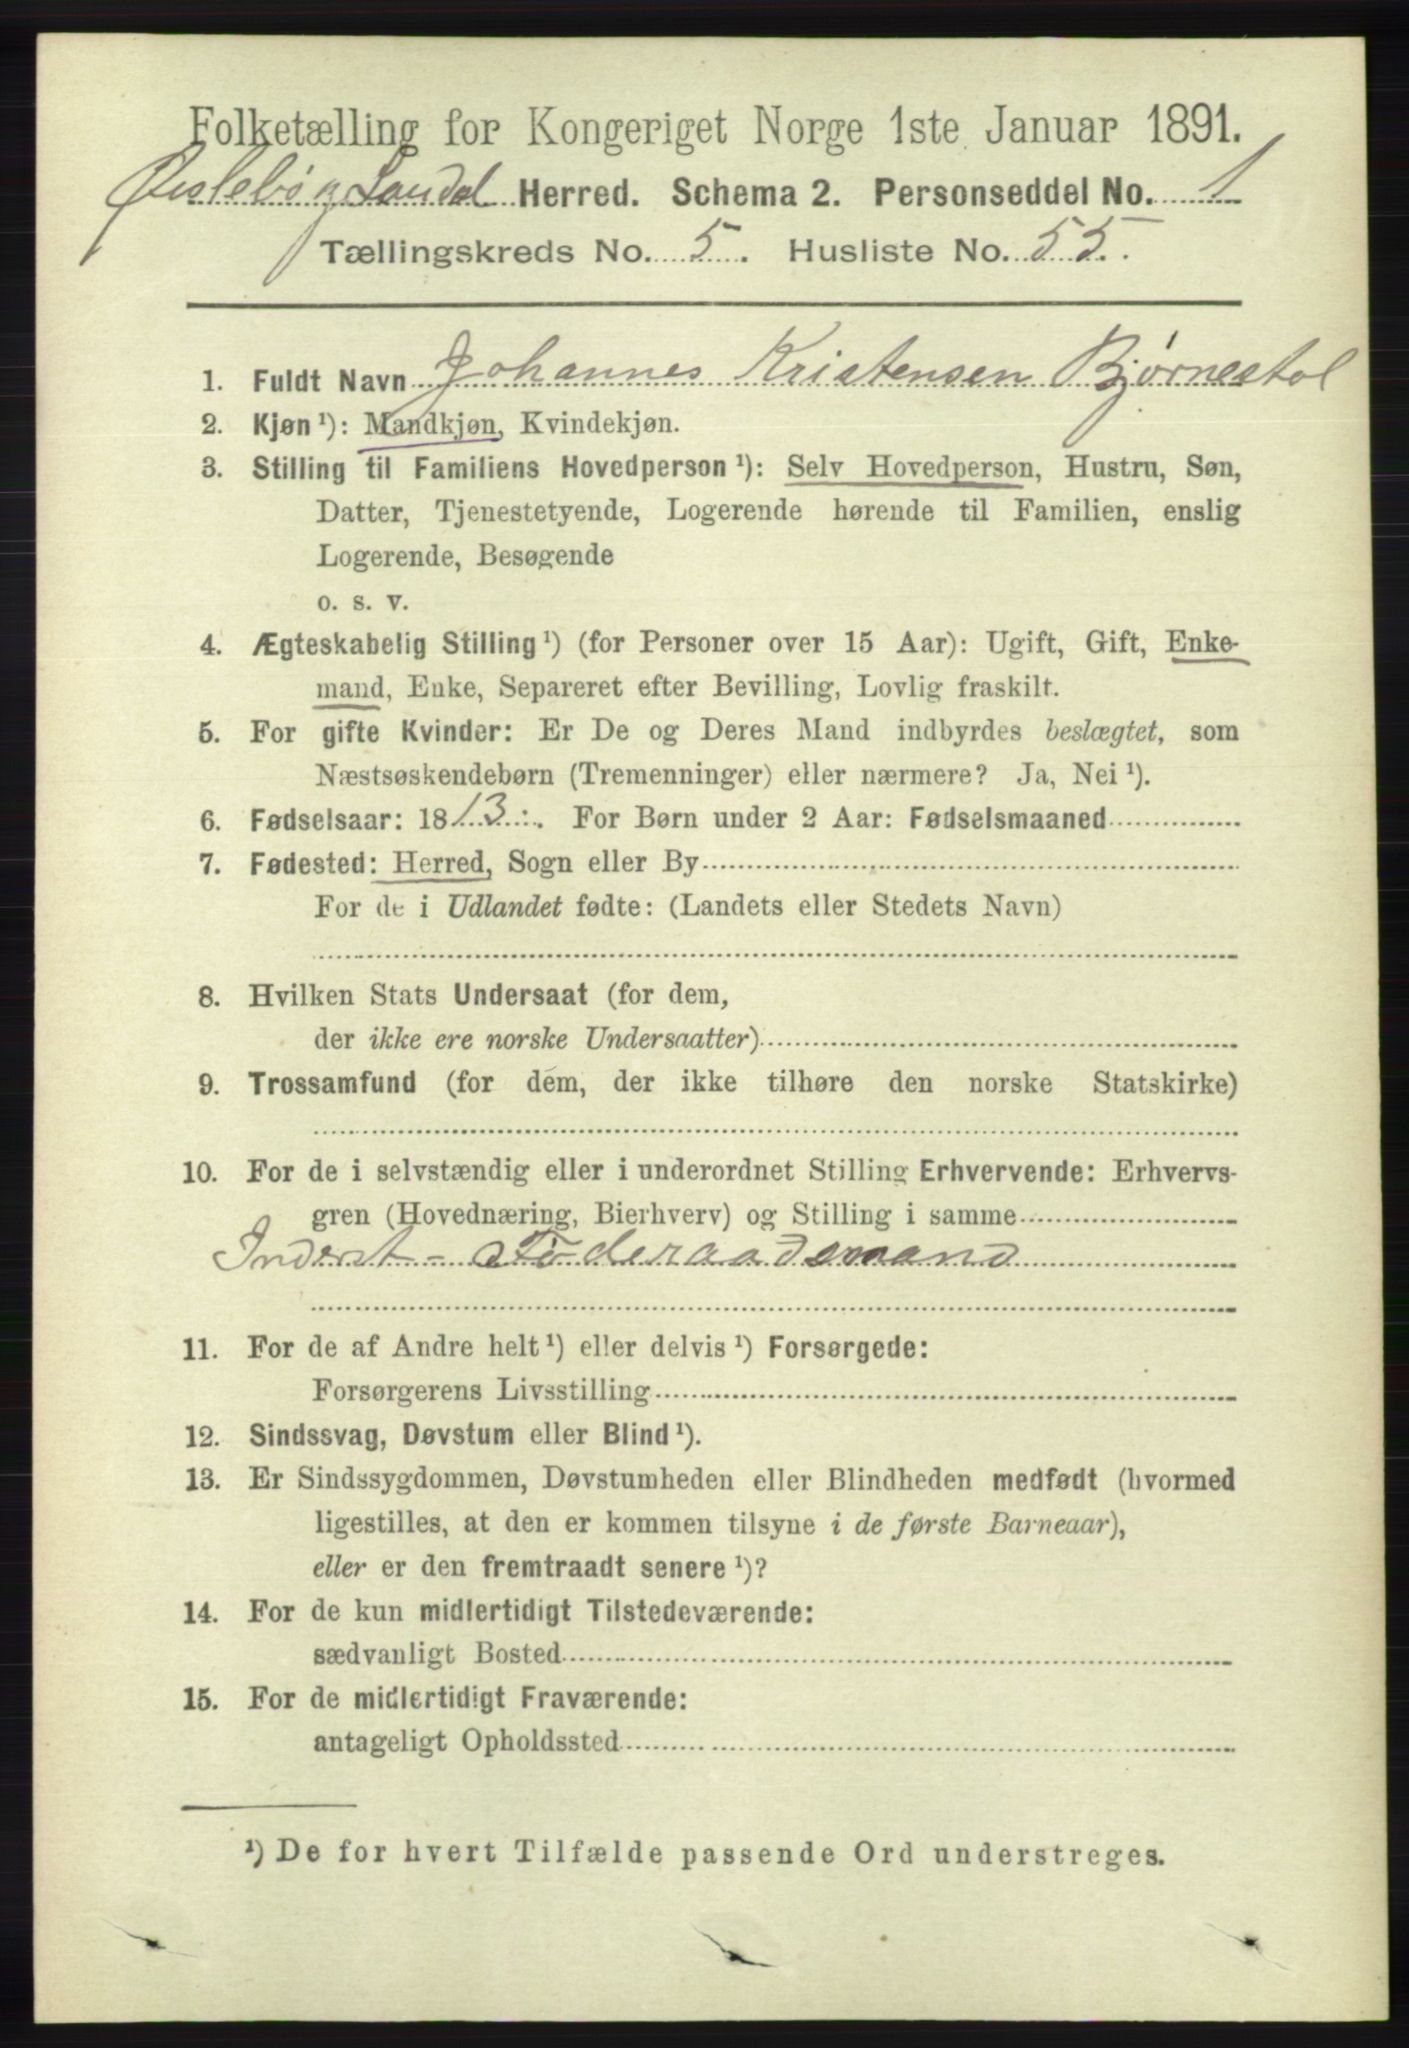 Folketælling for Kongeriget Norge 1ste Januar 1891.
Øislebø og Laudal Herred. Schema 2. Personseddel No. 1
Tællingskreds No. 5. Husliste No. 55.
1. Fuldt Navn Johannes Kristensen Bjørnestøl
2. Kjøn ¹): Mandkjøn, Kvindekjøn.
3. Stilling til Familiens Hovedperson ¹): Selv Hovedperson, Hustru, Søn,
Datter, Tjenestetyende, Logerende hørende til Familien, enslig
Logerende, Besøgende
o. s. v.
4. Ægteskabelig Stilling ¹) (for Personer over 15 Aar): Ugift, Gift, Enke-
mand, Enke, Separeret efter Bevilling, Lovlig fraskilt.
5. For gifte Kvinder: Er De og Deres Mand indbyrdes beslægtet, som
Næstsøskendebørn (Tremenninger) eller nærmere? Ja, Nei ¹).
6. Fødselsaar: 1813. For Børn under 2 Aar: Fødselsmaaned
7. Fødested: Herred, Sogn eller By
For de i Udlandet fødte: (Landets eller Stedets Navn)
8. Hvilken Stats Undersaat (for dem,
der ikke ere norske Undersaatter)
9. Trossamfund (for dem, der ikke tilhøre den norske Statskirke)
10. For de i selvstændig eller i underordnet Stilling Erhvervende: Erhvervs-
gren (Hovednæring, Bierhverv) og Stilling i samme
Inderst - Føderaadsmand
11. For de af Andre helt ¹) eller delvis ¹) Forsørgede:
Forsørgerens Livsstilling
12. Sindssvag, Døvstum eller Blind ¹).
13. Er Sindssygdommen, Døvstumheden eller Blindheden medfødt (hvormed
ligestilles, at den er kommen tilsyne i de første Barneaar),
eller er den fremtraadt senere ¹)?
14. For de kun midlertidigt Tilstedeværende:
sædvanligt Bosted
15. For de midlertidigt Fraværende:
antageligt Opholdssted
¹) De for hvert Tilfælde passende Ord understreges.